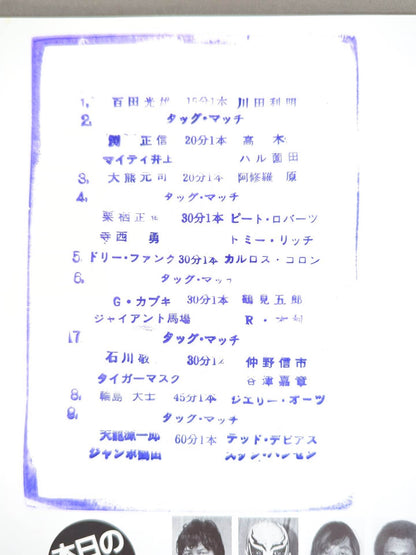 1. 百田光雄 15分1本 川田利明
2. タッグ・マッチ
正信 20分1本 高木
マイティ井上 ハル薗田
3. 大熊元司 20分1本 阿修羅 原
4. タッグ・マッチ
栗栖正 30分1本 ピート・ロバーツ
寺西 勇 トミー・リッチ
5. ドリー・ファンク 30分1本 カルロス・コロン
6. タッグ・マッ
G・カブキ 30分1本 鶴見五郎
ジャイアント馬場 R・
7 タッグ・マッチ
石川敬 30分1 仲野信市
タイガーマスク 谷津嘉章
8. 輪島 大士 45分1本 ジエリー・オーツ
9. タッグ・マッチ
天龍源一郎 60分1本 テッド・デビアス
ジャンボ鶴田 スタン・ハンセン
本日の